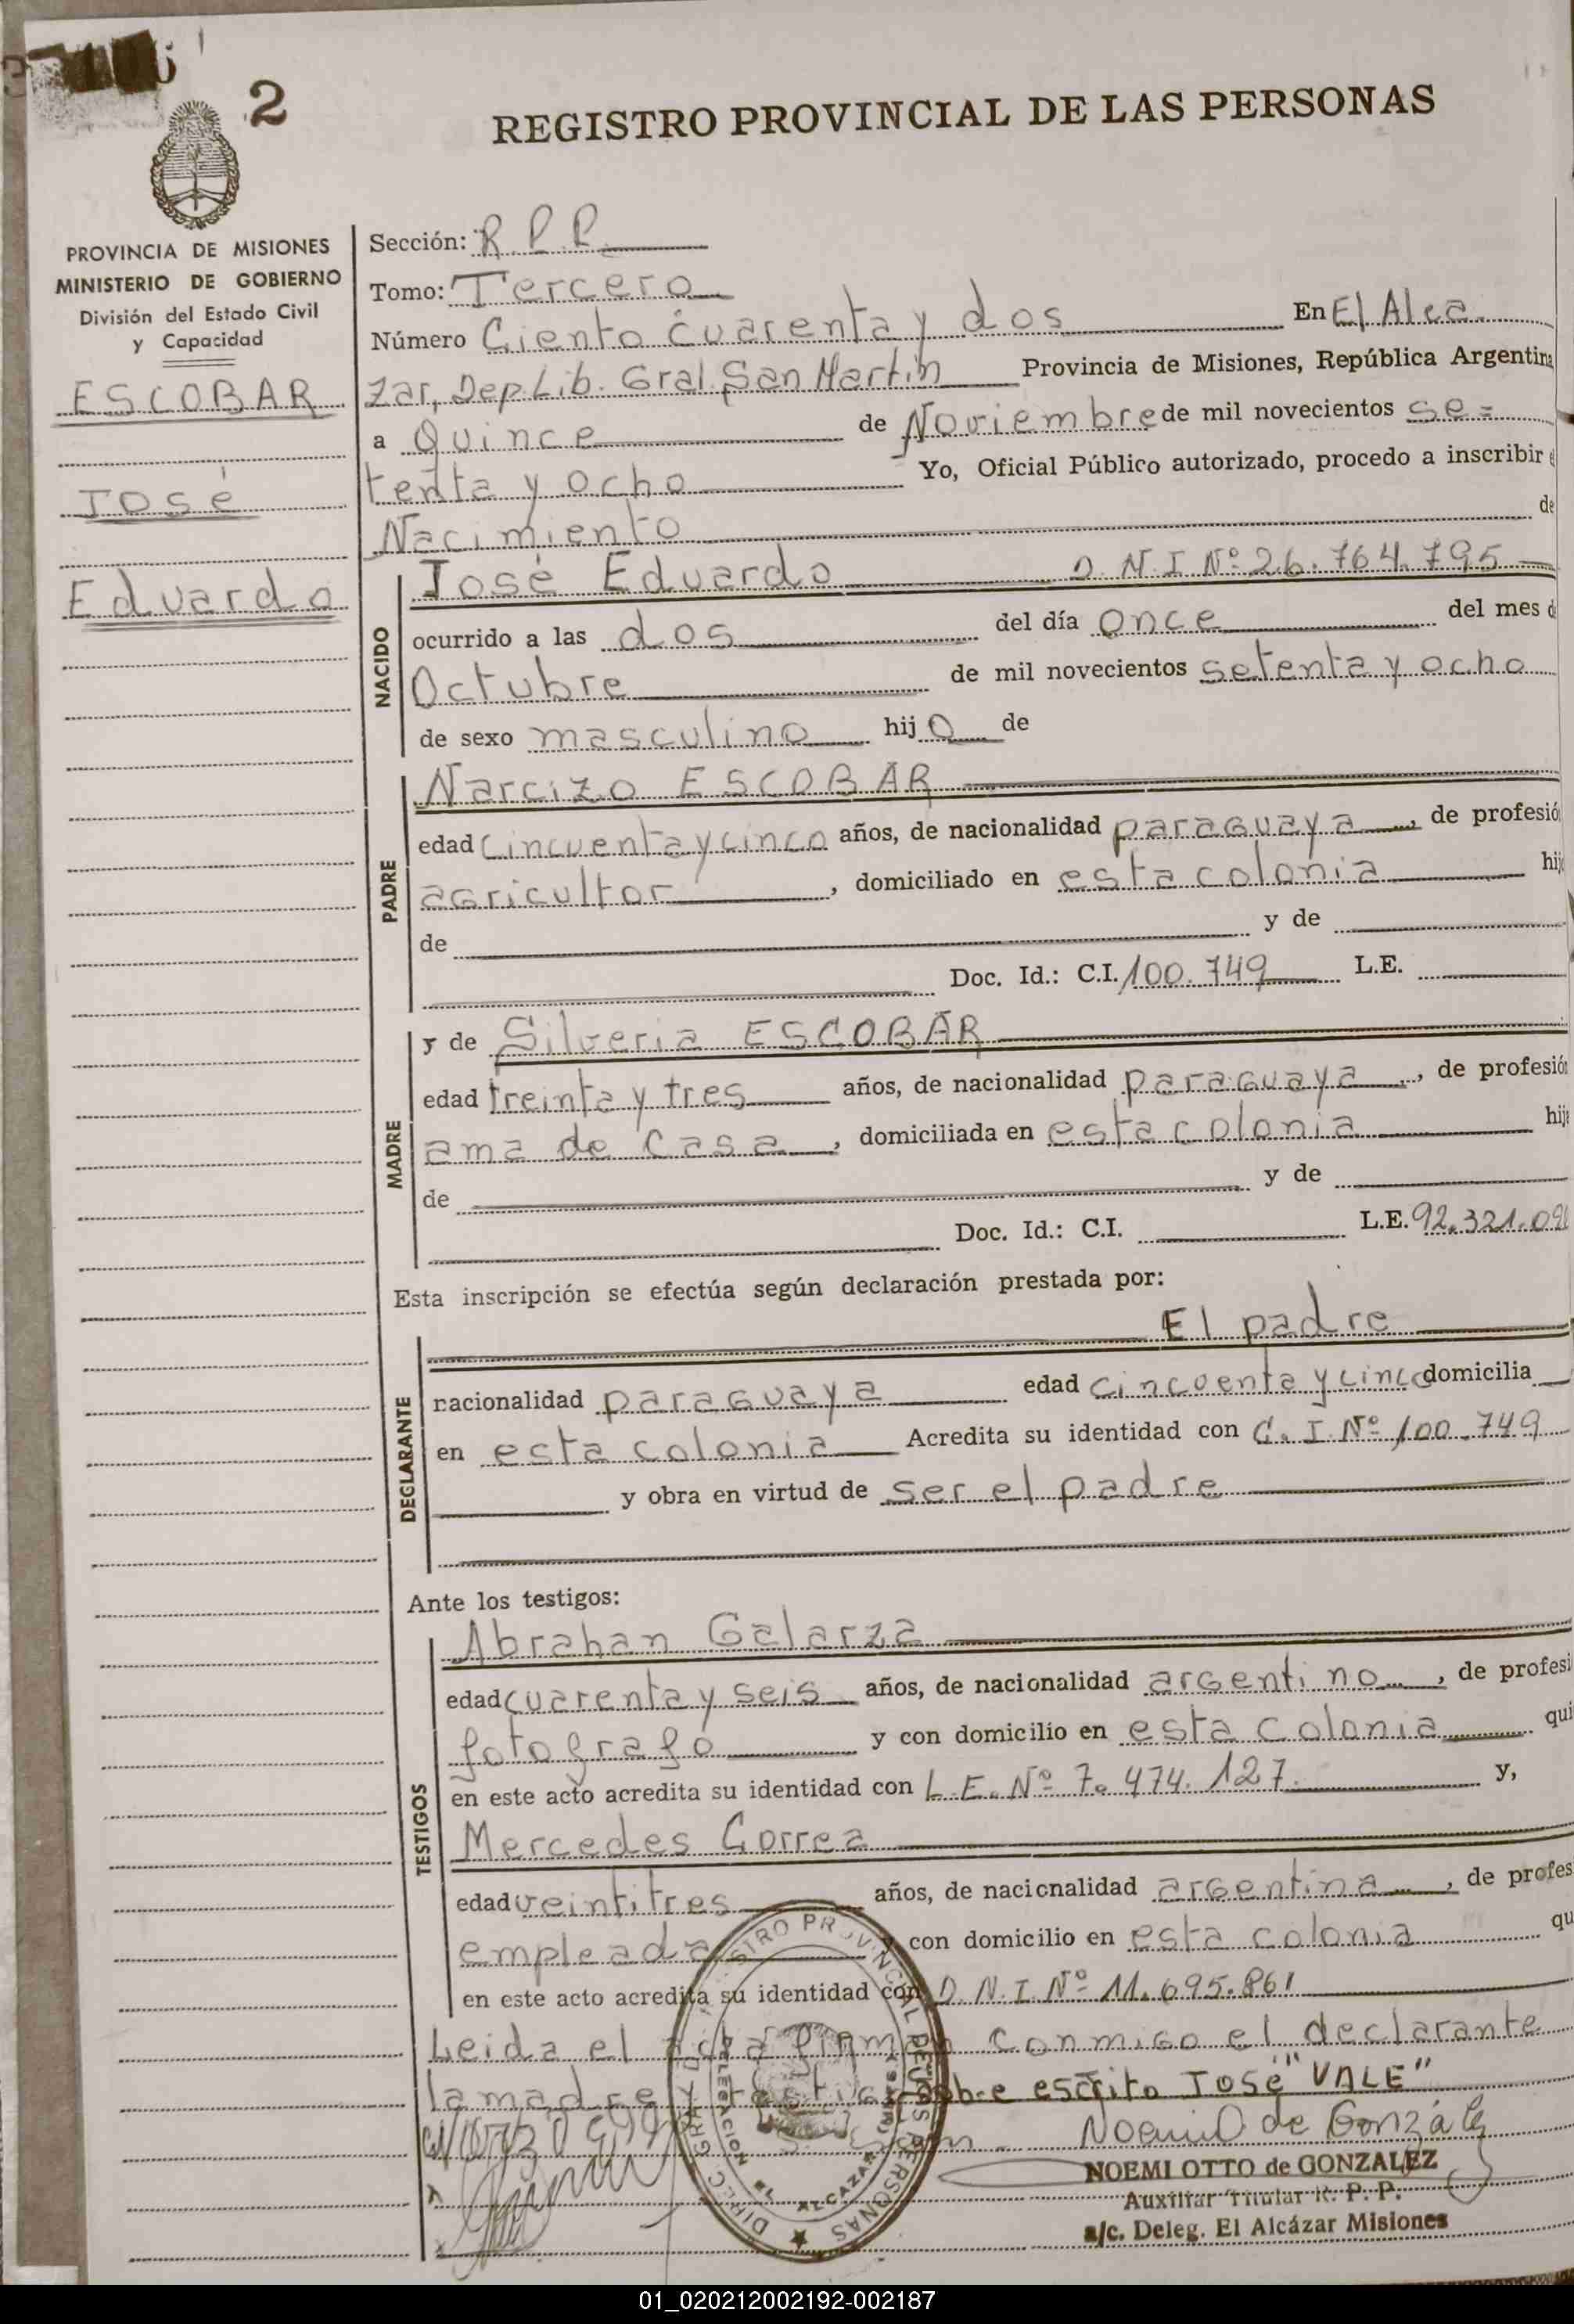 2
REGISTRO PROVINCIAL DE LAS PERSONAS
PROVINCIA DE MISIONES
MINISTERIO DE GOBIERNO
División del Estado Civil
y Capacidad
ESCOBAR
José
Eduardo
Sección: R.P.P.
Tomo: Tercero
Número Ciento cuarenta y dos En El Alca
zar, Dep. Lib. Gral. San Martín Provincia de Misiones, República Argentina
a Quince de Noviembre de mil novecientos se=
tenta y ocho Yo, Oficial Público autorizado, procedo a inscribir
Nacimiento de
NACIDO
José Eduardo D.N.I. Nº 26.764.795
ocurrido a las dos del día once del mes d
Octubre de mil novecientos setenta y ocho
de sexo masculino hijo de
PADRE
Narcizo ESCOBAR
edad cincuenta y cinco años, de nacionalidad paraguaya, de profesió
agricultor, domiciliado en esta colonia hij
de y de
Doc. Id.: C.I. 100.749 L.E.
MADRE
y de Silveria ESCOBAR
edad treinta y tres años, de nacionalidad paraguaya, de profesión
ama de casa, domiciliada en esta colonia hij
de y de
Doc. Id.: C.I. L.E. 92.321.09
Esta inscripción se efectúa según declaración prestada por:
DECLARANTE
El padre
nacionalidad paraguaya edad cincuenta y cinco domicilia
en esta colonia Acredita su identidad con C.I. Nº 100.749
y obra en virtud de ser el padre
Ante los testigos:
TESTIGOS
Abrahan Galarza
edad cuarenta y seis años, de nacionalidad argentino, de profesi
fotografo y con domicilio en esta colonia qui
en este acto acredita su identidad con L.E. Nº 7.474.127 y,
Mercedes Correa
edad veintitres años, de nacionalidad argentina, de profes
empleada con domicilio en esta colonia qu
en este acto acredita su identidad con D.N.I. Nº 11.695.861
Leida el acta firman conmigo el declarante
la madre y testigos sobre escrito José "VALE"
Noemi O de González
NOEMI OTTO de GONZALEZ
Auxiliar Titular R. P. P.
a/c. Deleg. El Alcázar Misiones
01_020212002192-002187